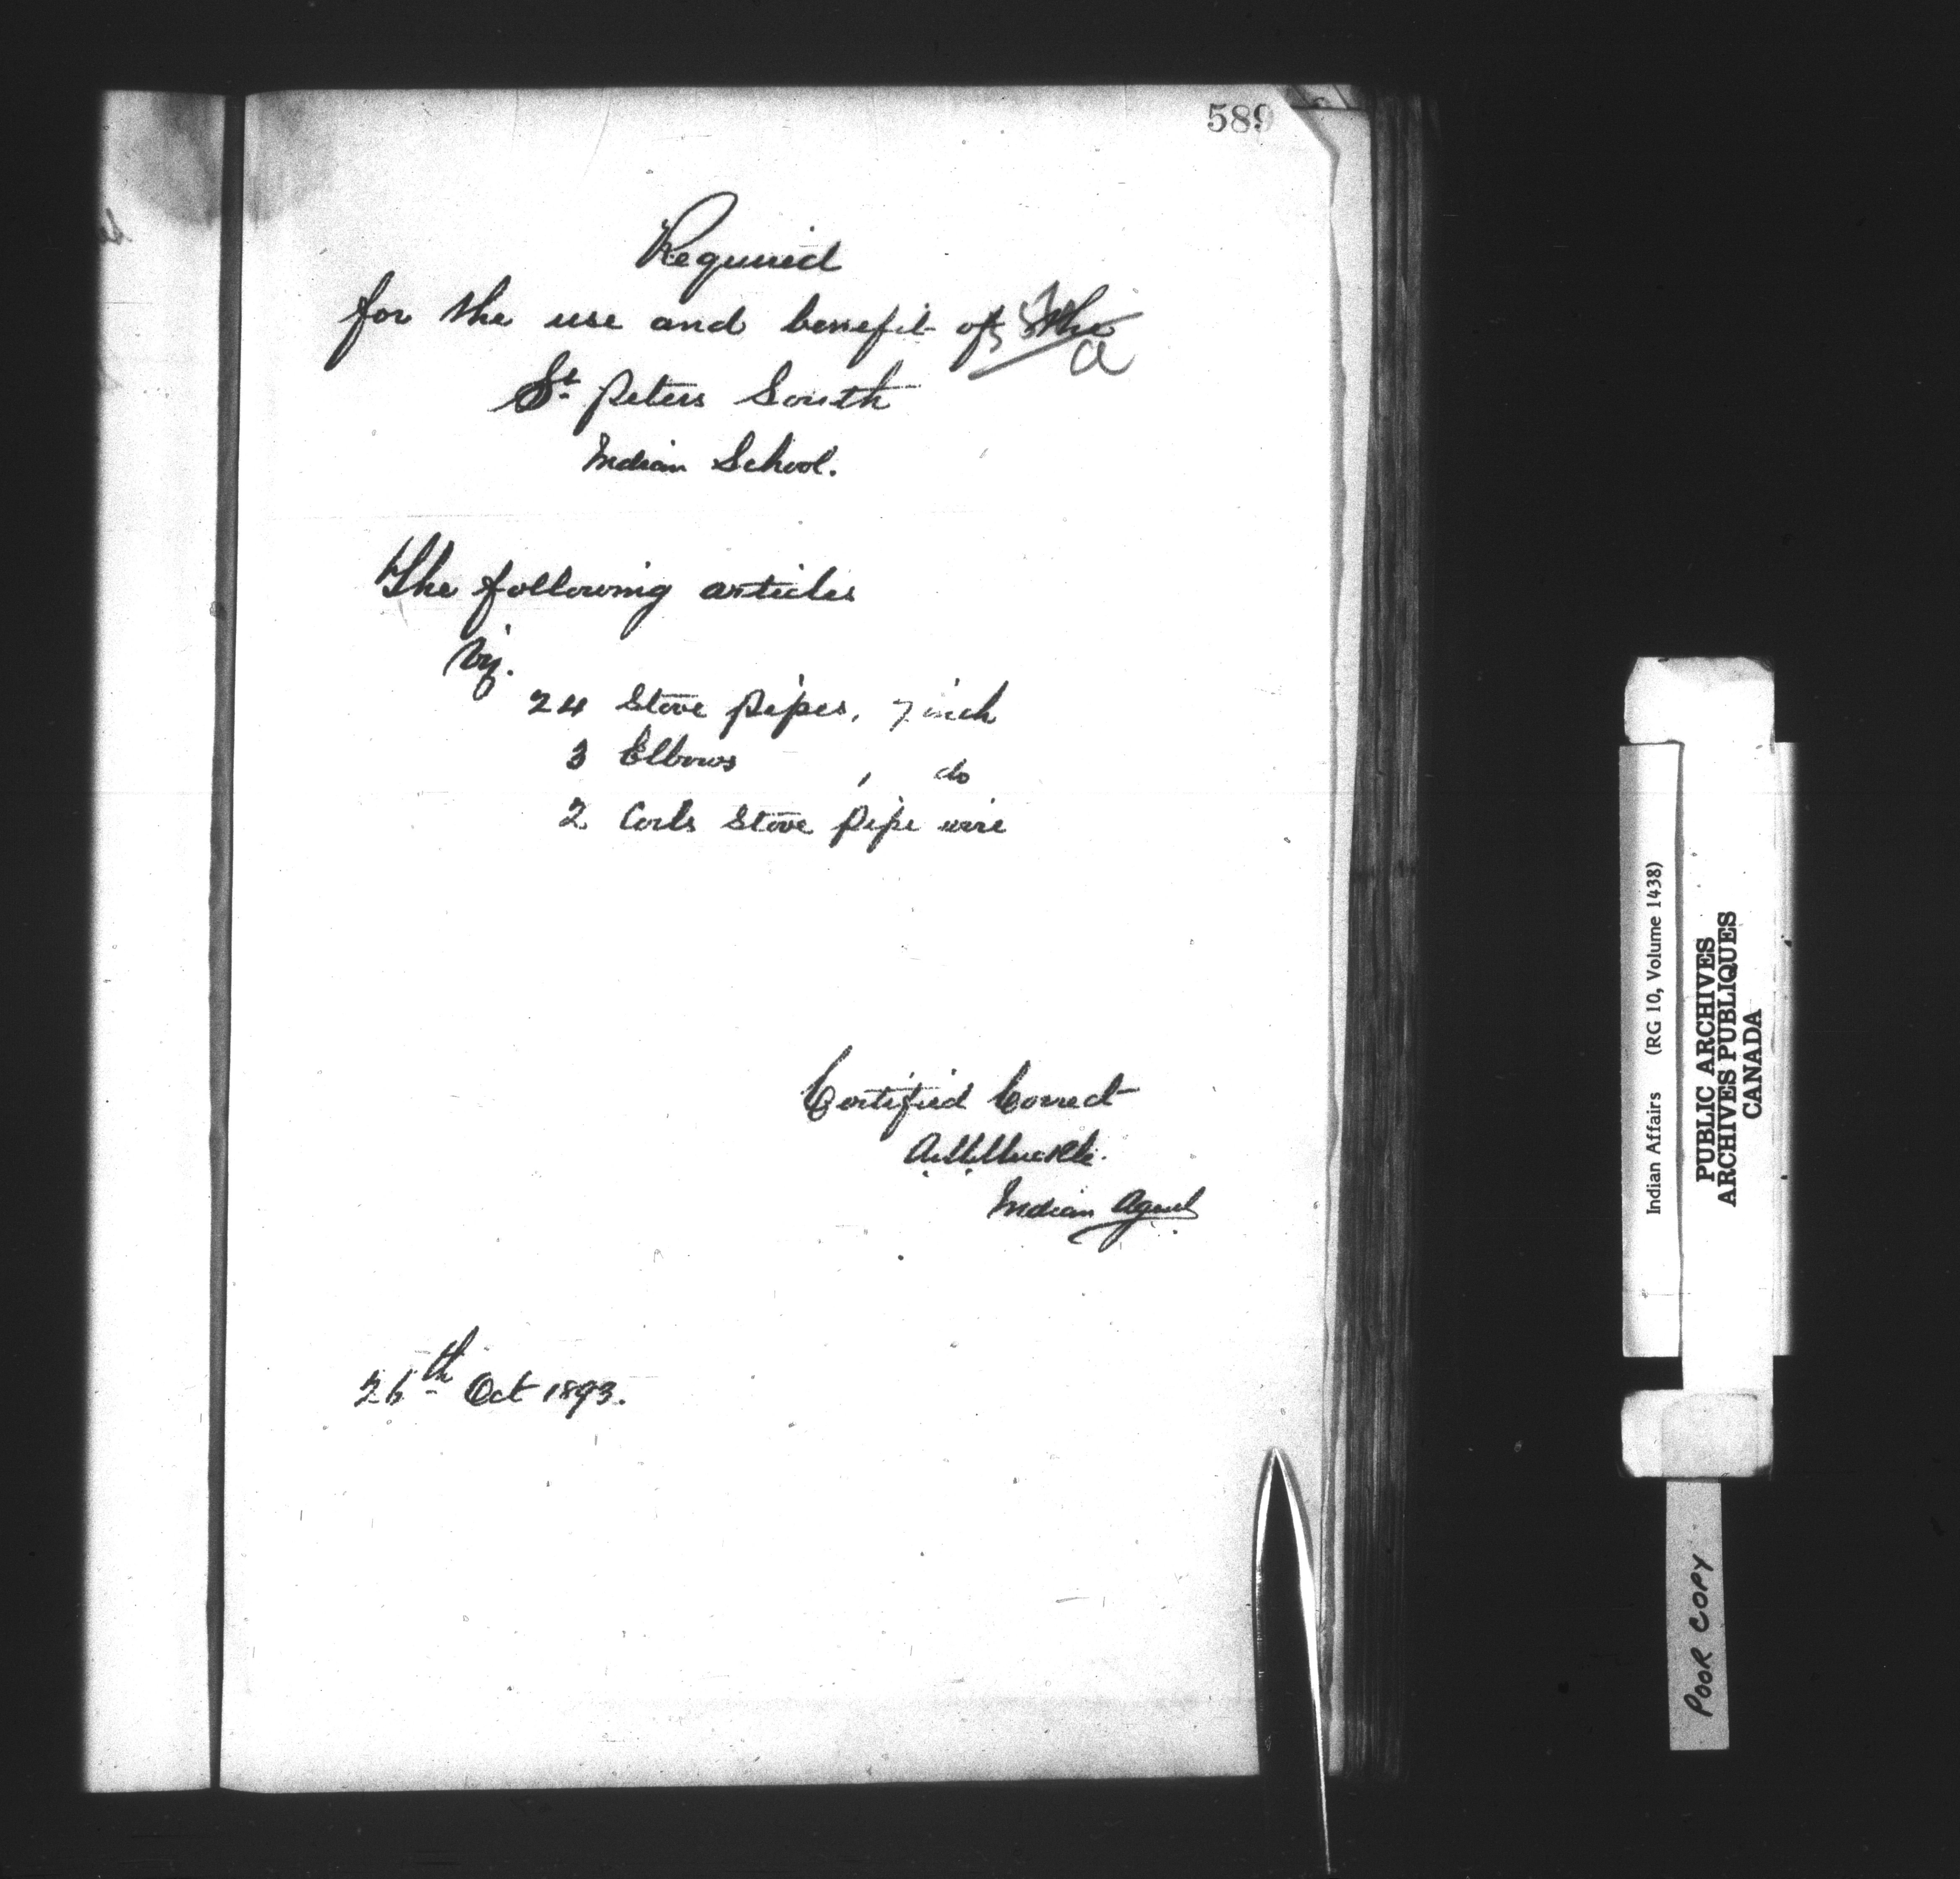 589
Required
for the use and benefit of the
a
St Peters South
Indian School.
The following articles
viz.
24 Stove pipes, 7 inch
3 Elbows , do
2 Coils Stove pipe wire
Certified Correct
A. M. Muckle.
Indian Agent
26th Oct 1893.
Indian Affairs (RG 10, Volume 1438)
PUBLIC ARCHIVES
ARCHIVES PUBLIQUES
CANADA
POOR COPY